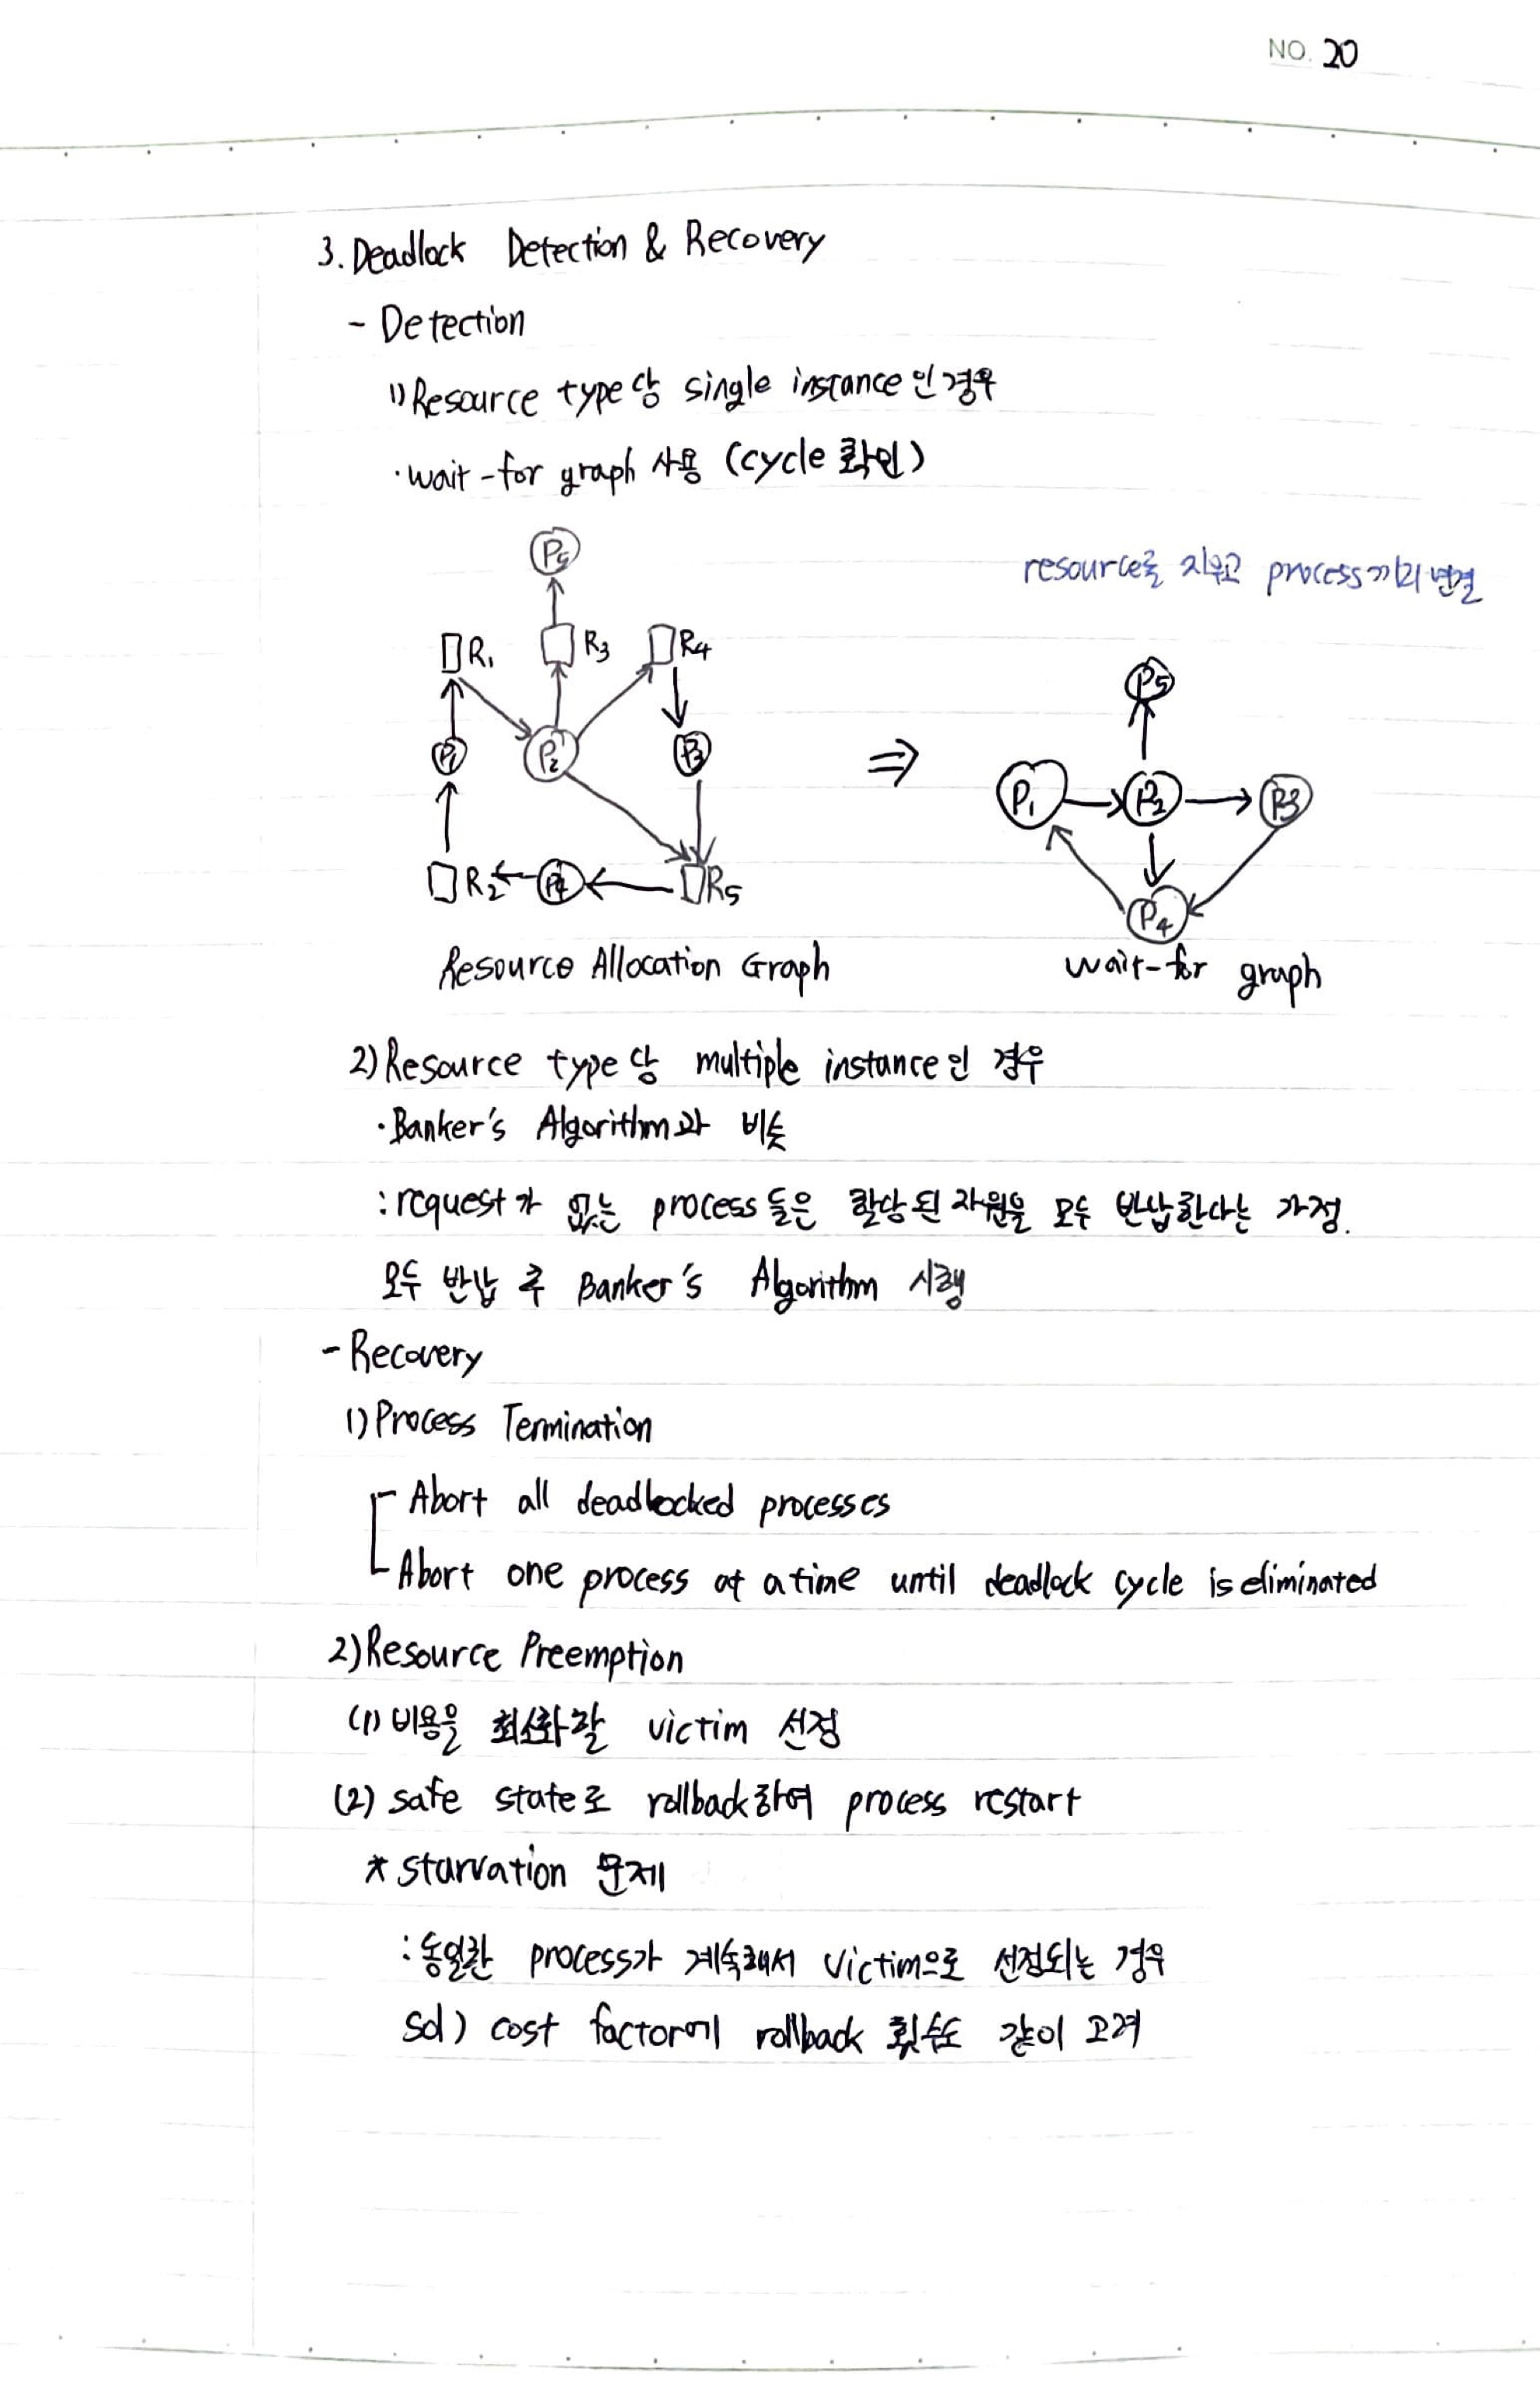 NO. 20
3. Deadlock Detection & Recovery
- Detection
1) Resource type당 single instance인 경우
· wait-for graph 사용 (cycle 확인)
resource를 지우고 process끼리 연결
P5
R1 R3 R4
P5
P1 P2 P3
⇒
P1 P2 P3
R2 P4 R5
P4
Resource Allocation Graph
wait-for graph
2) Resource type당 multiple instance인 경우
· Banker's Algorithm과 비슷
: request가 없는 process들은 할당된 자원을 모두 반납한다는 가정.
모두 반납 후 Banker's Algorithm 시행
- Recovery
1) Process Termination
- Abort all deadlocked processes
- Abort one process at a time until deadlock cycle is eliminated
2) Resource Preemption
(1) 비용을 최소화할 victim 선정
(2) safe state로 rollback하여 process restart
* starvation 문제
: 동일한 process가 계속해서 victim으로 선정되는 경우
sol) cost factor에 rollback 횟수도 같이 고려